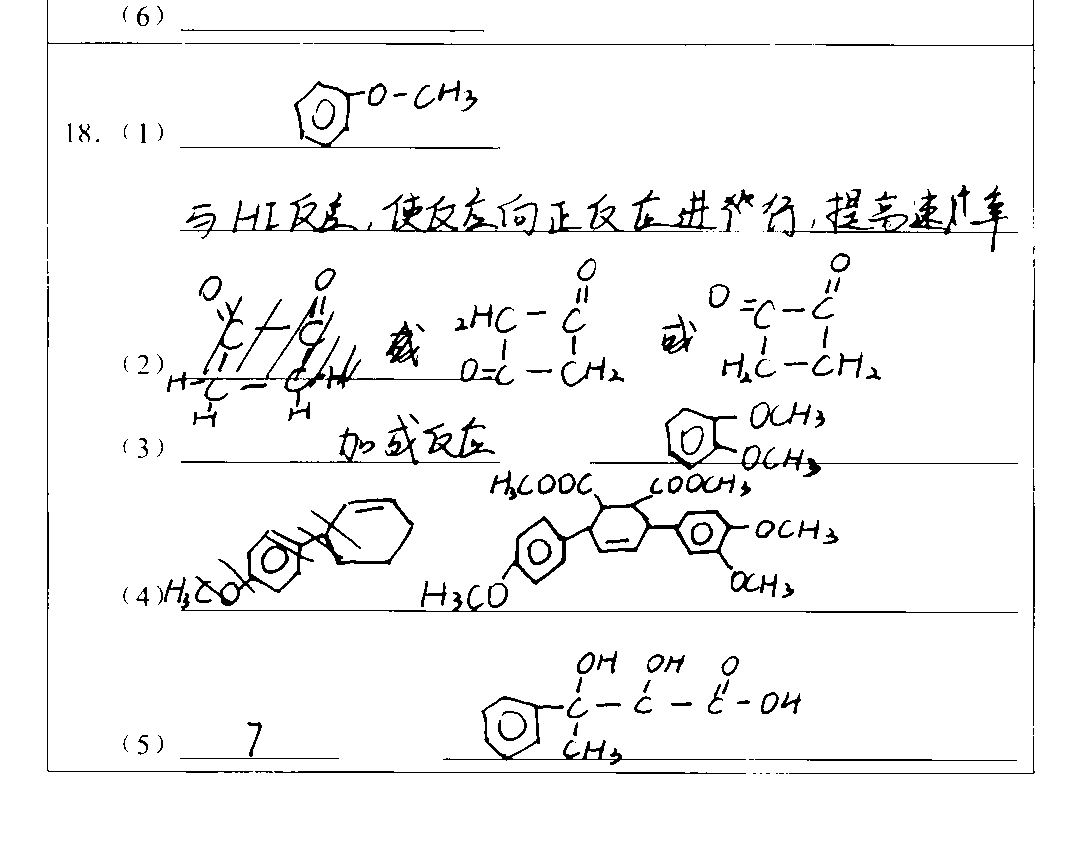 (6)
18. (1) O-CH3
与HI反应,使反应向正反应进行,提高速率
(2) O O 或 2HC - C O O=C - CH2 或 O=C - C O H2C - CH2
(3) 加成反应 OCH3 OCH3
(4) H3CO H3COOC COOCH3 H3CO OCH3 OCH3
(5) 7 OH OH O C - C - C - OH CH3